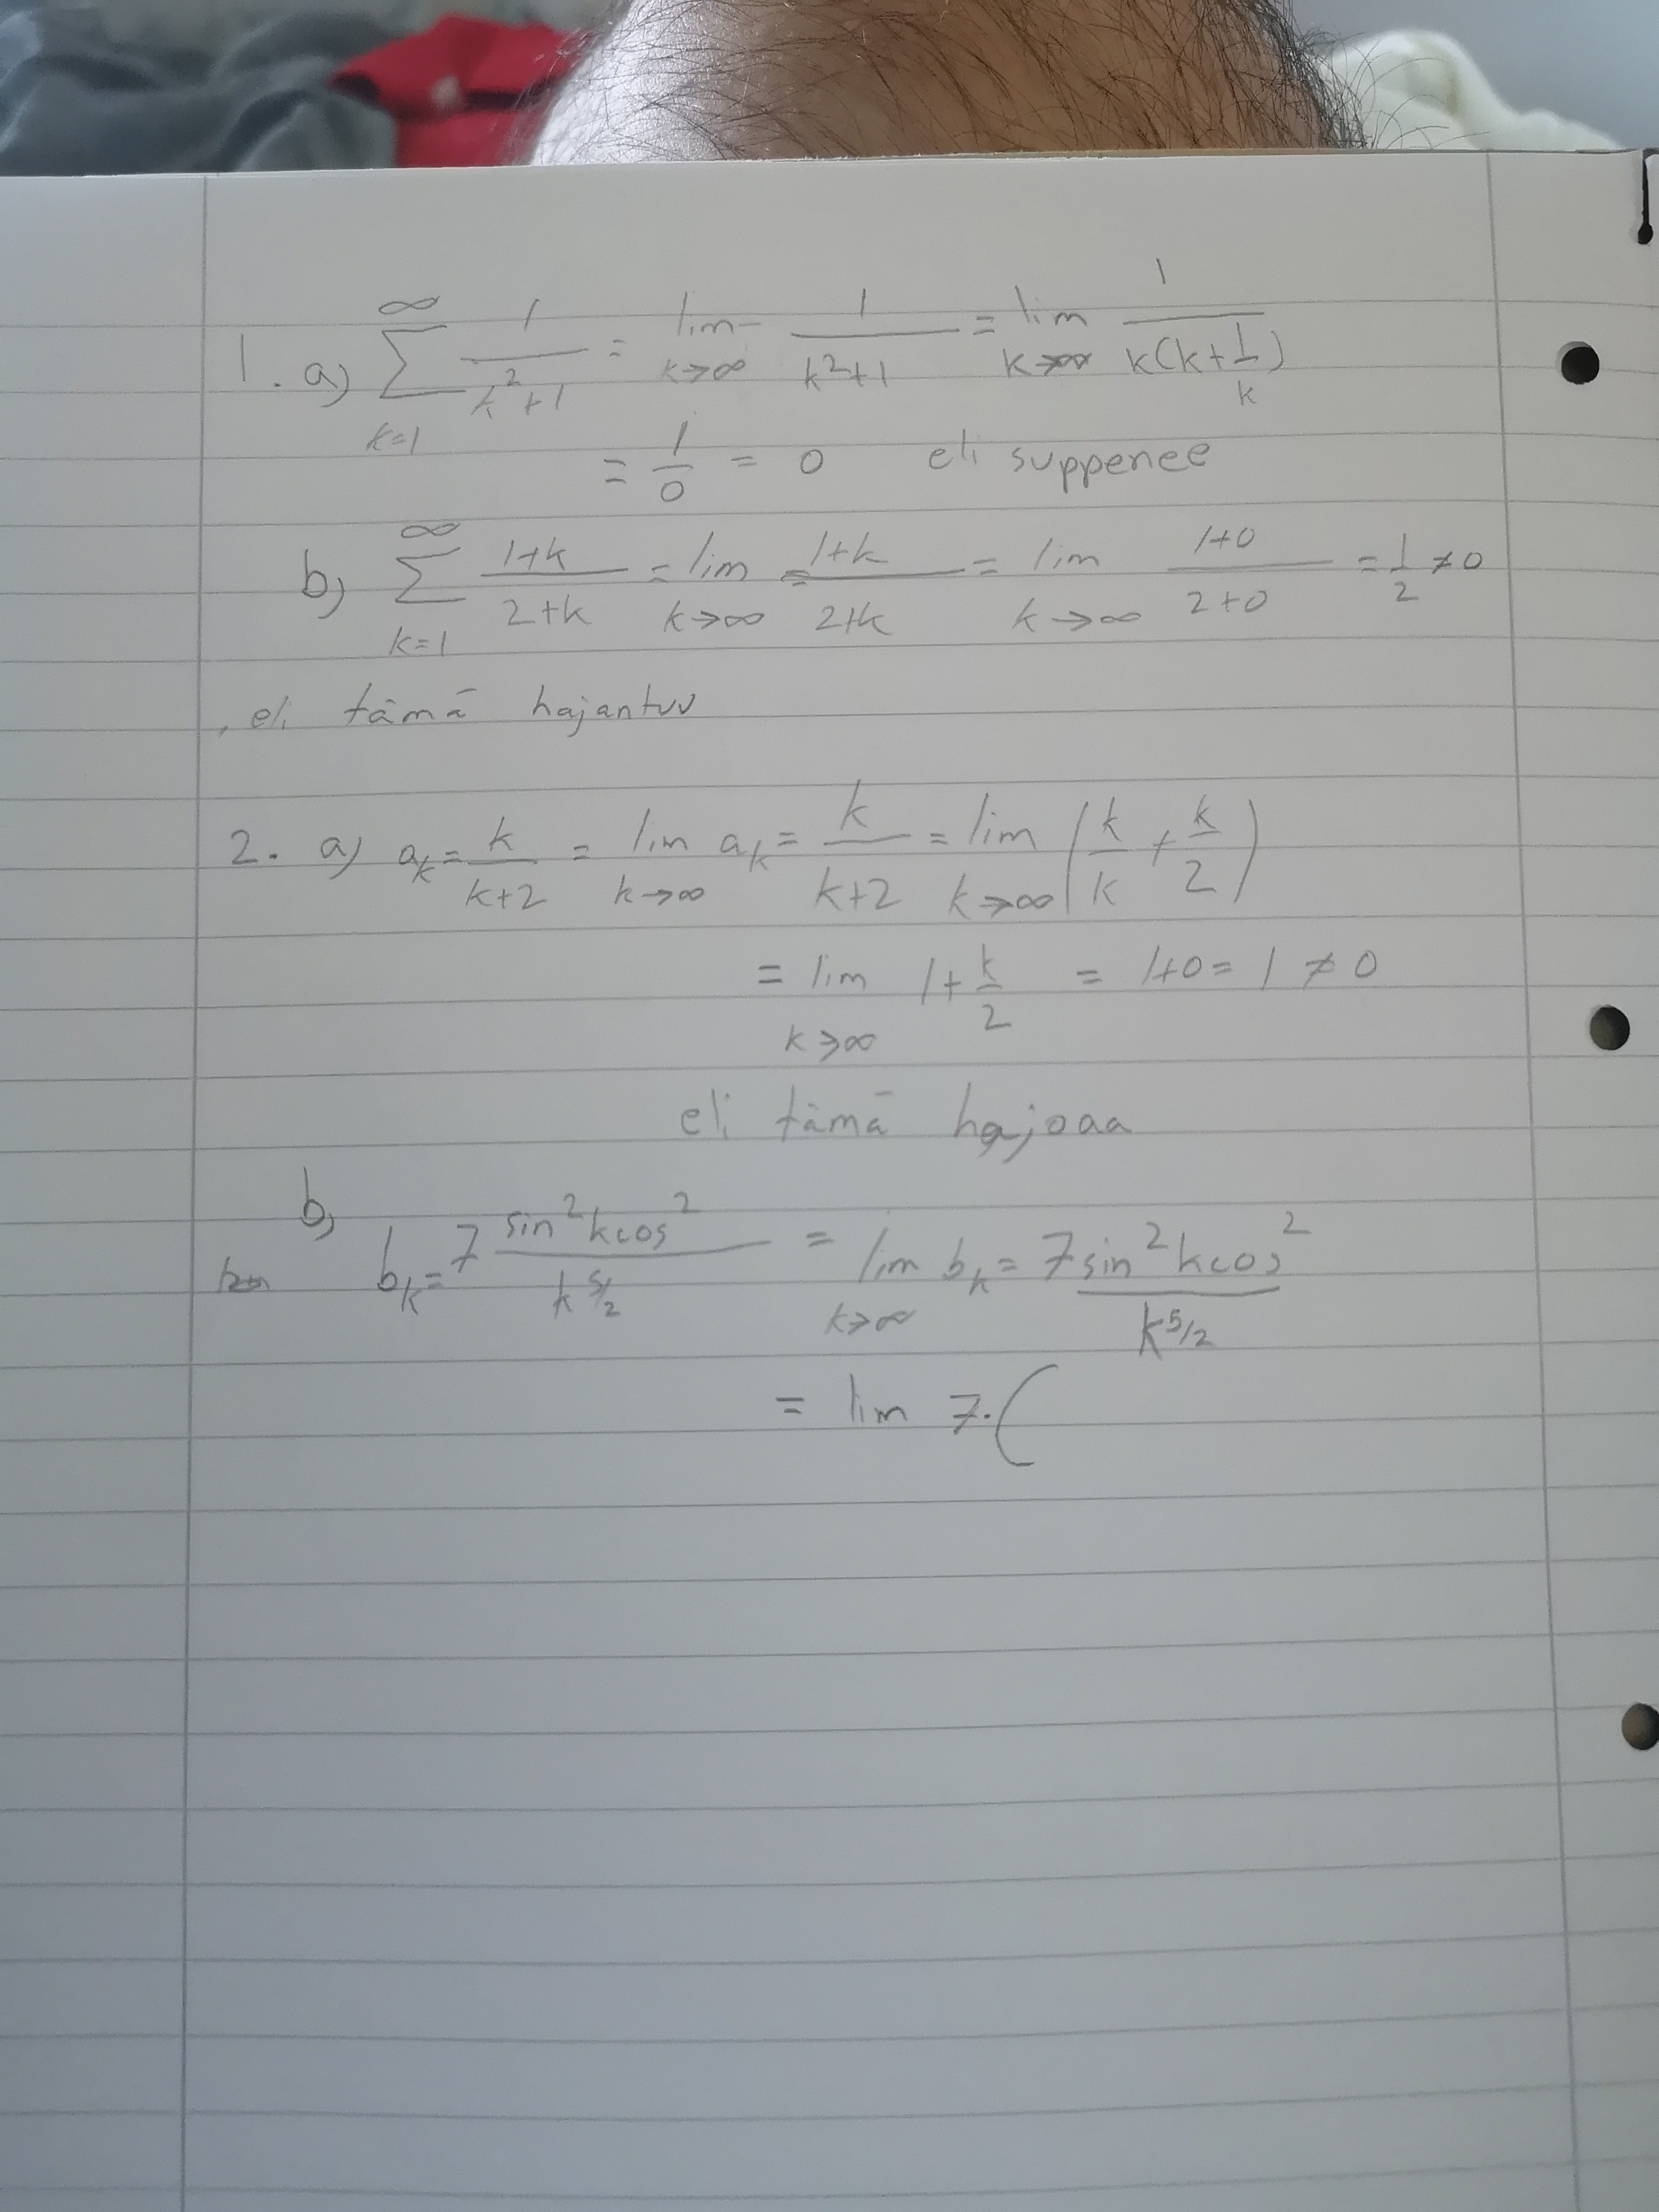 1. a) ∞∑k=1 1/(k²+1) = lim k→∞ 1/(k²+1) = lim k→∞ 1/(k(k+1/k))
= 1/0 = 0 eli suppenee
b) ∞∑k=1 (1+k)/(2+k) = lim k→∞ = (1+k)/(2+k) = lim k→∞ (1+0)/(2+0) = 1/2 ≠ 0
, eli tämä hajantuu
2. a) aₖ = k/(k+2) = lim k→∞ aₖ = k/(k+2) = lim k→∞ (k/k + k/2)
= lim k→∞ 1 + k/2 = 1+0 = 1 ≠ 0
eli tämä hajoaa
b) bₖ = 7 sin²kcos²/k^5/2 = lim k→∞ bₖ = 7 sin²kcos²/k^5/2
= lim 7·(